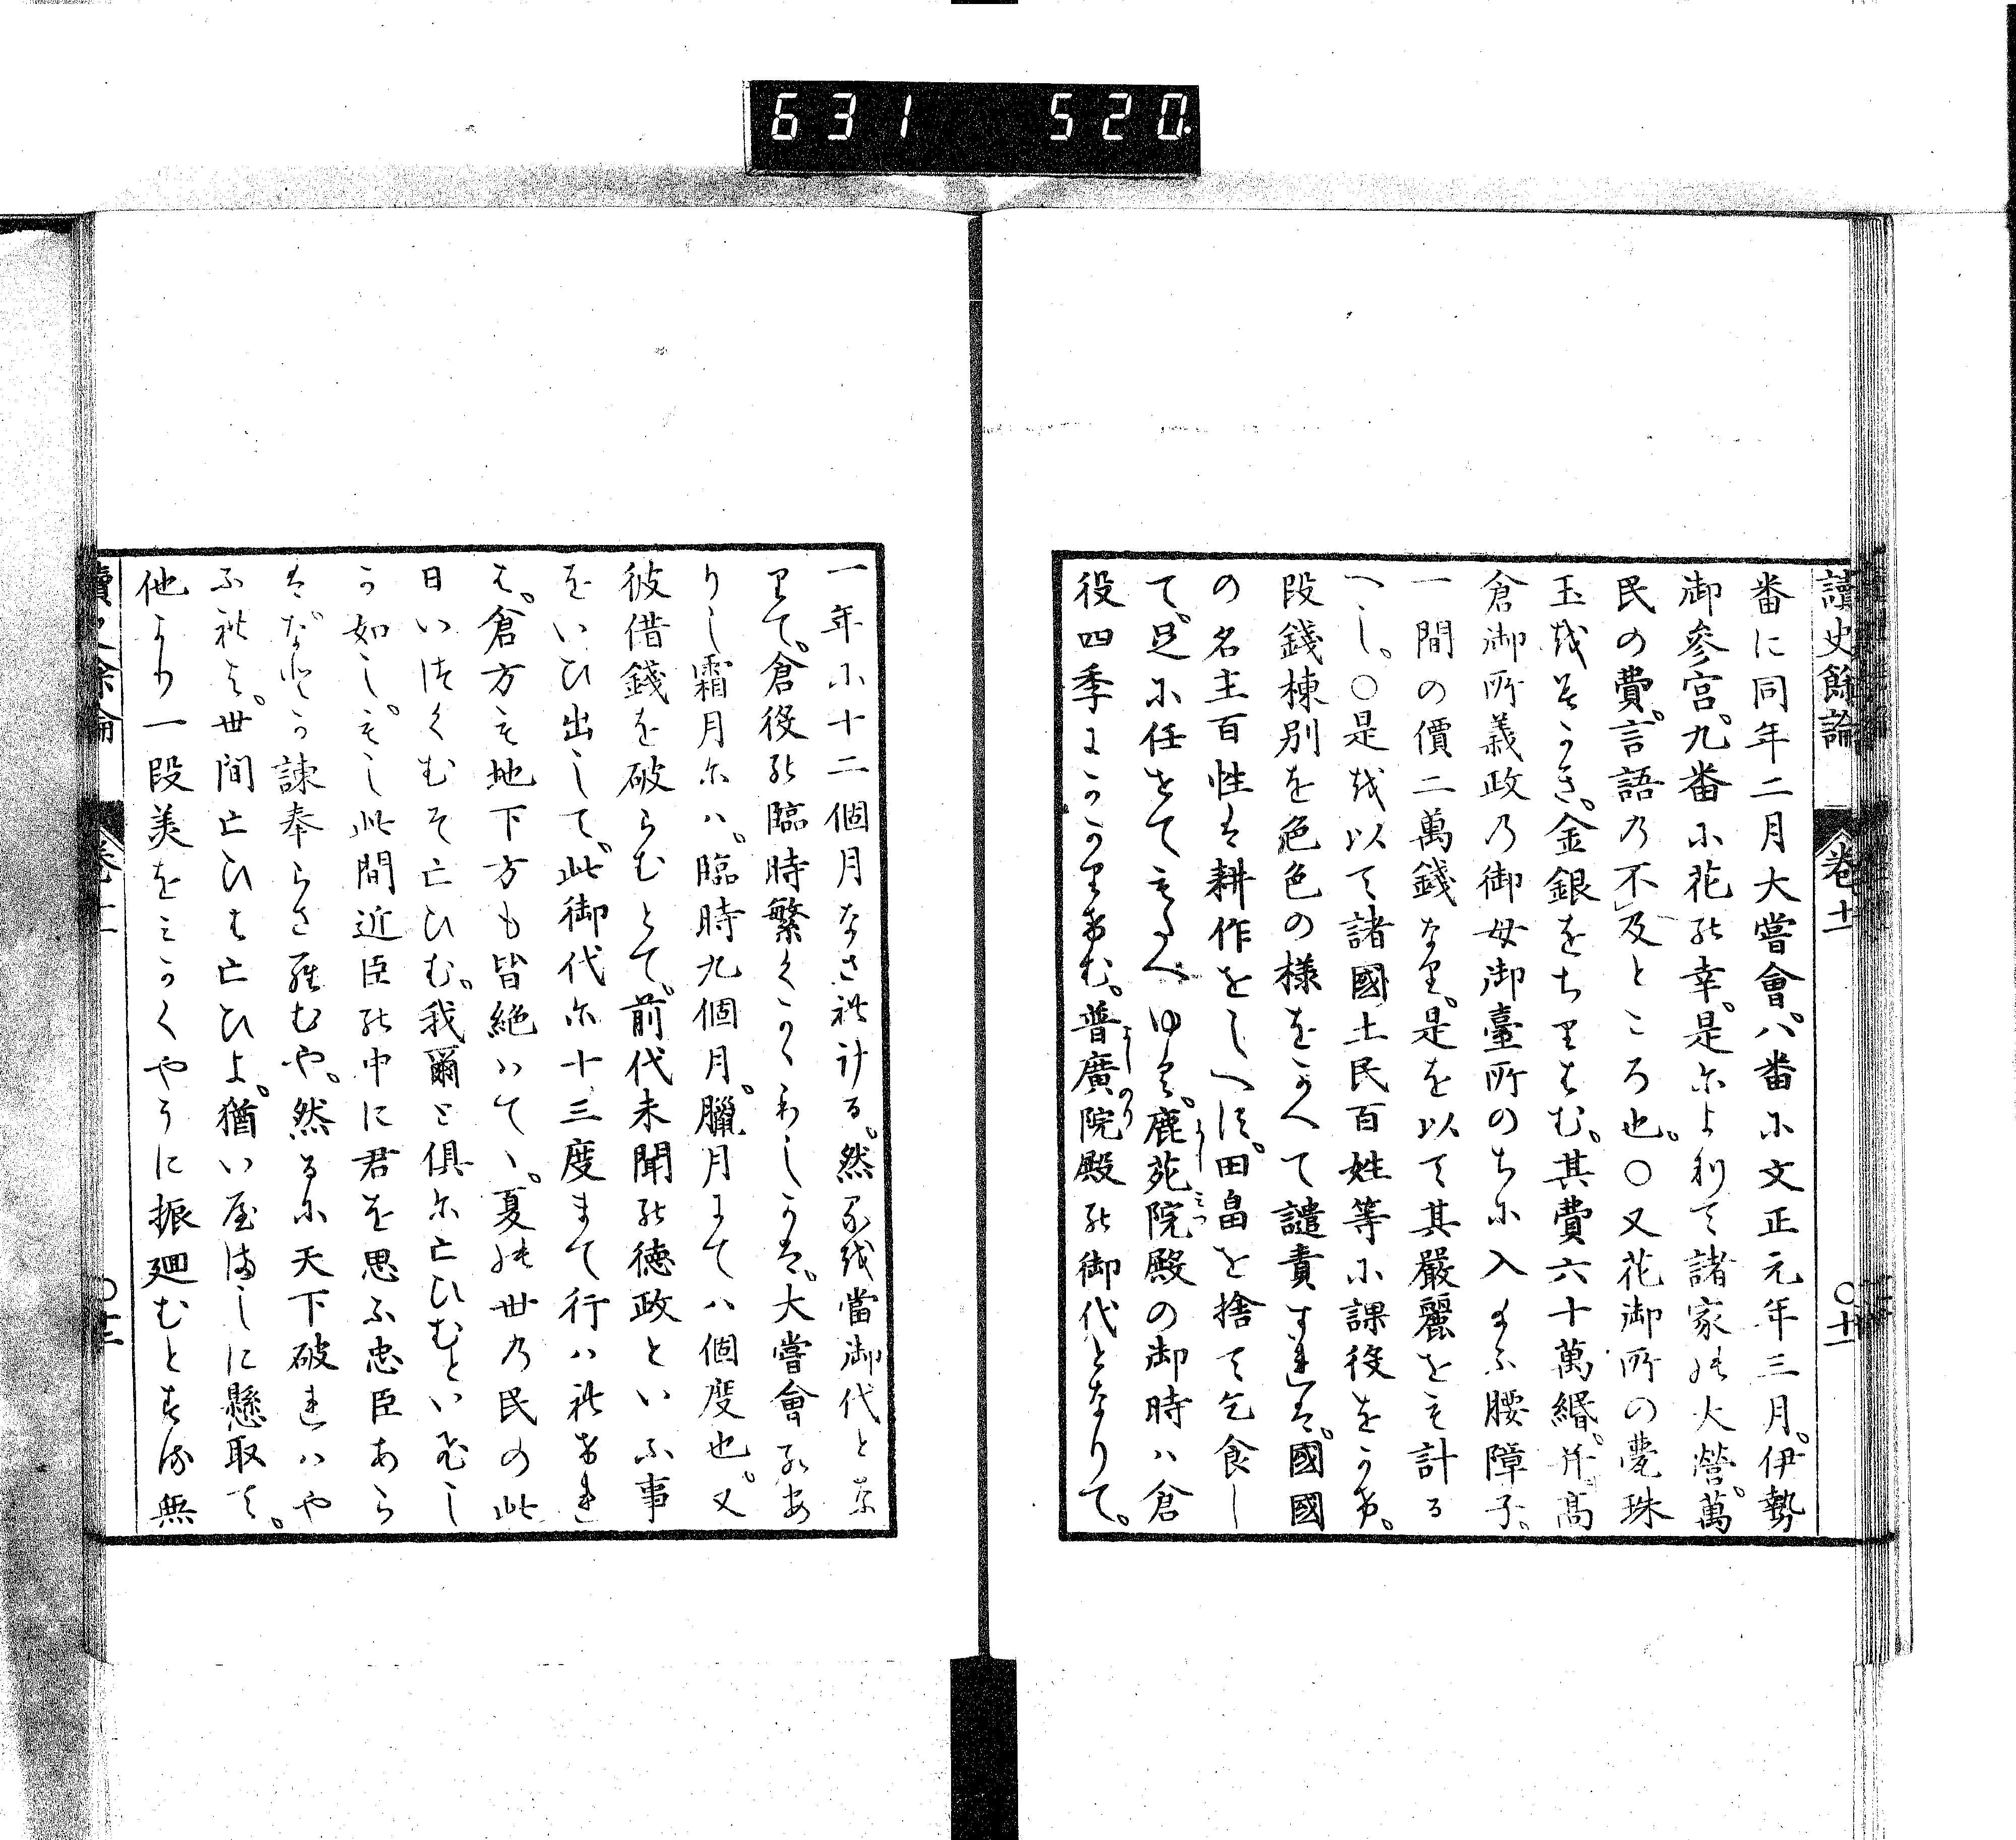 631 520
讀史餘論 卷十一 〇十一
番に同年二月大嘗會。八番に文正元年三月。伊勢
御參宮。九番に花の幸。是によりて諸家の大營。萬
民の費。言語の不及ところ也。〇又花御所の甍珠
玉をみかき。金銀をちりはむ。其費六十萬緡。并高
倉御所義政の御母御臺所のちに入まふ腰障子。
一間の價二萬錢なり。是を以て其嚴麗をも計る
へし。〇是を以て諸國土民百姓等に課役をかけ。
段錢棟別を色色の樣をかへて譴責すれは。國國
の名主百性は耕作をしへす。田畠を捨て乞食し
て。足に任せてもたへゆく。鹿苑院殿の御時ハ倉
役四季にかゝりけむ。普廣院殿の御代となりて。
一年に十二個月なされける。然るを當御代とな
りて。倉役の臨時繁くかゝわしかは。大嘗會のあ
りし霜月にハ。臨時九個月。臘月にてハ個度也。又
彼借錢を破らむとて。前代未聞の德政といふ事
をいひ出して。此御代に十三度まて行ハれけれ
は。倉方も地下方も皆絶ハてゝ。夏の世の民の此
日いつくむそ亡ひむ。我爾と倶に亡ひむといひし
か如し。もし此間近臣の中に君を思ふ忠臣あら
はなとか諫奉らさらむや。然るに天下破れハや
ふれよ。世間亡ひは亡ひよ。猶いやましに懸取て。
他より一段美をみかくやうに振廻むとする無